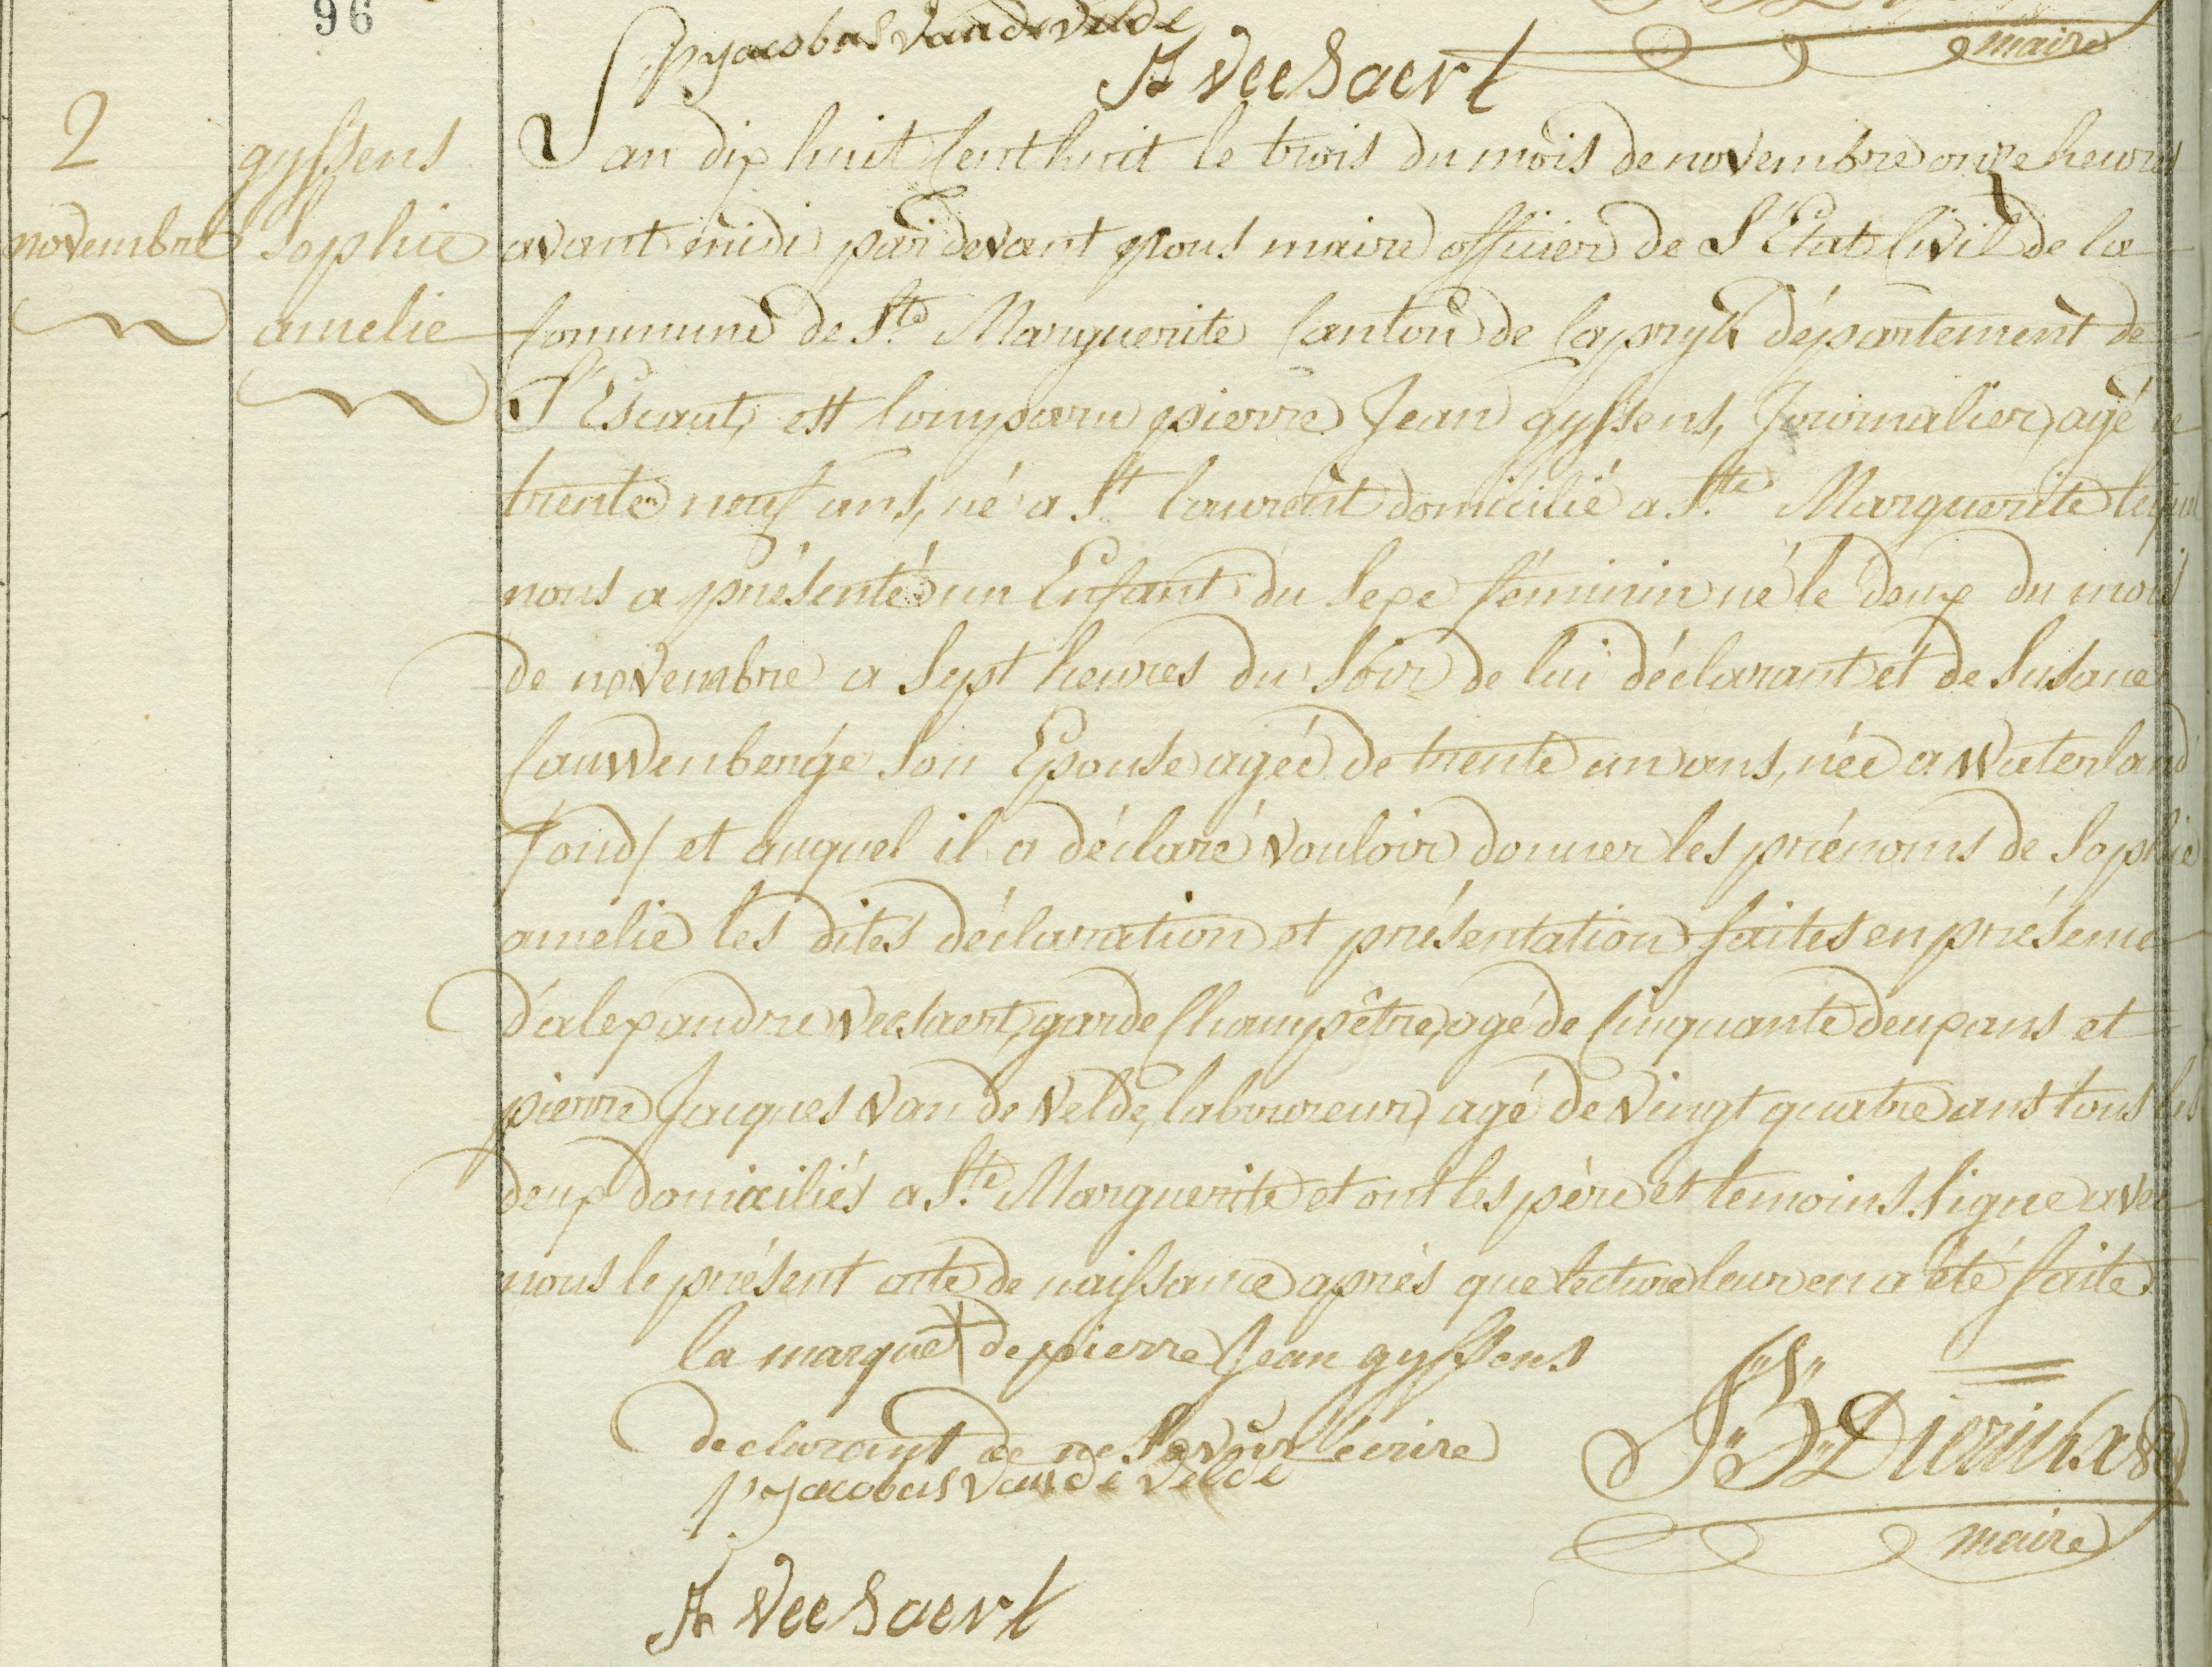 96
pjacobus van de velde
A Veesaert
maire
2
novembre
gyssens
Sophie
amelie
L'an dix huit Cent huit le trois du mois de novembre onze heures
avant midi par devant nous maire officier de L'Etat Civil de la
Commune de Ste Marguerite Canton de Capryk département de
L'Escaut, est Comparu pierre Jean gyssens, Journalier, agé de
trente neuf ans, né a St laurent domicilié a Ste Marguerite lequel
nous a présenté un Enfant du Sexe féminin né le deux du mois
de novembre a Sept heures du Soir de lui déclarant et de Susane
Cauwenberge Son Epouse agée de trente un ans, née a Waterland
/oud/ et auquel il a déclaré vouloir donner les prénoms de Sophie
amelie les dites déclaration et présentation faites en présence
d'alexandre Veesaert, garde Champêtre, agé de Cinquante deux ans et
pierre Jacques van de Velde, laboureur, agé de vingt quatre ans tous les
deux domiciliés a Ste Marguerite et ont les père et temoins Signe avec
nous le présent acte de naissance après que lecture leur en a été faite
la marque X de pierre Jean gyssens
declarant de ne Savoir ecrire
pjacobus van de velde
J B Dierickx
maire
A Veesaert